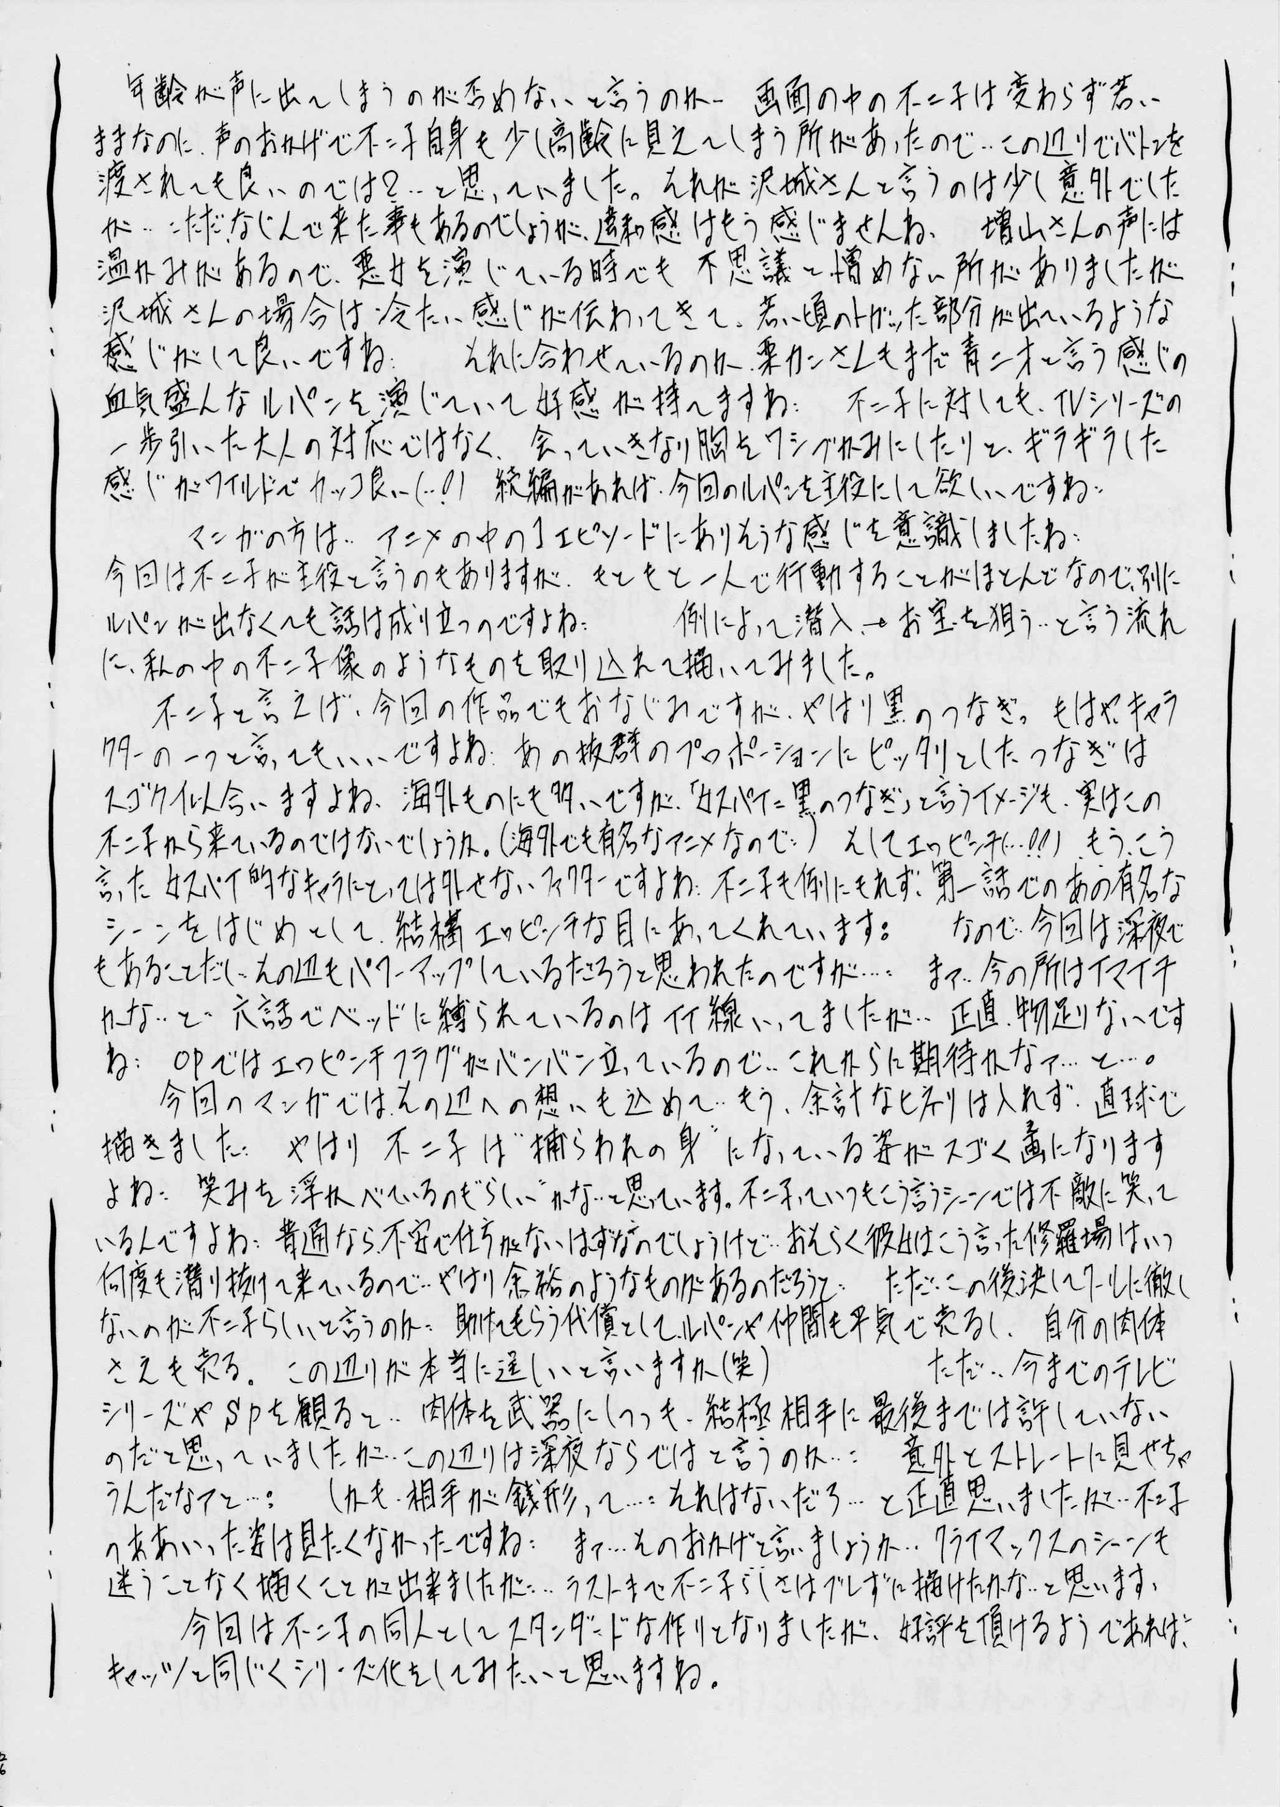 年齢が声に出てしまうのが否めないと言うのか… 画面の中の不二子は変わらず若い
ままなのに、声のおかげで不二子自身も少し高齢に見えてしまう所があったので‥この辺りでバトンを
渡されても良いのでは?‥と思っていました。それが沢城さんと言うのは少し意外でした
が‥ ただ、なじんで来た事もあるのでしょうが、違和感はもう感じませんね、 増山さんの声には
温かみがあるので、悪女を演じている時でも 不思議と憎めない所がありましたが
沢城さんの場合は冷たい感じが伝わってきて、若い頃のトガッた部分が出ているような
感じがして良いですね‥ それに合わせているのか、栗カンさんもまだ青二才と言う感じの
血気盛んなルパンを演じていて好感が持てますね‥ 不二子に対しても、TVシリーズの
一歩引いた大人の対応ではなく、会っていきなり胸をワシヅかみにしたりと、ギラギラした
感じがワイルドでカッコ良い(‥!) 続編があれば、今回のルパンを主役にして欲しいですね‥
マンガの方は‥ アニメの中の1エピソードにありそうな感じを意識しましたね‥
今回は不二子が主役と言うのもありますが、もともと一人で行動することがほとんどなので、別に
ルパンが出なくても話は成り立つのですよね‥ 例によって潜入→お宝を狙う‥と言う流れ
に、私の中の不二子像のようなものを取り込れて描いてみました。
不二子と言えば、今回の作品でもおなじみですが、やはり黒のつなぎっ もはや、キャラ
クターの一つと言ってもいいですよね‥ あの抜群のプロポーションにピッタリとしたつなぎは
スゴク似合いますよね、海外ものにも多いですが、「女スパイ=黒のつなぎ」と言うイメージも、実はこの
不二子から来ているのではないでしょうか。(海外でも有名なアニメなので‥) そしてエロピンチ(…!!) もう、こう
言った女スパイ的なキャラにとっては外せないファクターですよね‥ 不二子も例にもれず、第一話でのあの有名な
シーンをはじめとして、結構エロピンチな目にあってくれています。 なので‥今回は深夜で
もあることだし、その辺もパワーアップしているだろうと思われたのですが…‥ まァ‥今の所はイマイチ
かな‥と‥ 六話でベッドに縛られているのはイイ線いってましたが‥ 正直、物足りないです
ね‥ OPではエロピンチフラグがバンバン立っているので‥これからに期待かなァ…と…。
今回のマンガでは、その辺への想いも込めて‥もう、余計なヒネリは入れず、直球で
描きました‥ やはり 不二子は"捕らわれの身"になっている姿がスゴく画になります
よね‥ 笑みを浮かべているのも"らしい"かな‥と思っています。不二子っていつもこう言うシーンでは不敵に笑って
いるんですよね‥ 普通なら、不安で仕方がないはずなのでしょうけど‥おそらく彼女はこう言った修羅場はいつ
何度も潜り抜けて来ているので‥やはり余裕のようなものがあるのだろうと‥ ただ‥この後決してクールに徹し
ないのが不二子らしいと言うのか‥ 助けてもらう代償として、ルパンや仲間も平気で売るし、自分の肉体
さえも売る。この辺りが本当に逞しいと言いますか(笑) ただ‥今までのテレビ
シリーズやSPを観ると‥ 肉体を武器にしつつも、結極相手に最後までは許していない
のだと思っていましたが…この辺りは深夜ならではと言うのか…‥ 意外とストレートに見せちゃ
うんだなァと…‥ しかも、相手が銭形って…‥それはないだろ…と正直思いましたがで‥不二子
のああいった姿は見たくなかったですね‥ まァ…そのおかげと言いましょうか‥クライマックスのシーンも
迷うことなく描くことが出来ましたが…ラストまで不二子らしさはブレずに描けたかな‥と思います、
今回は不二子の同人としてスタンダードな作りとなりましたが、好評を頂けるようであれば、
キャッツと同じくシリーズ化をしてみたいと思いますね。
26